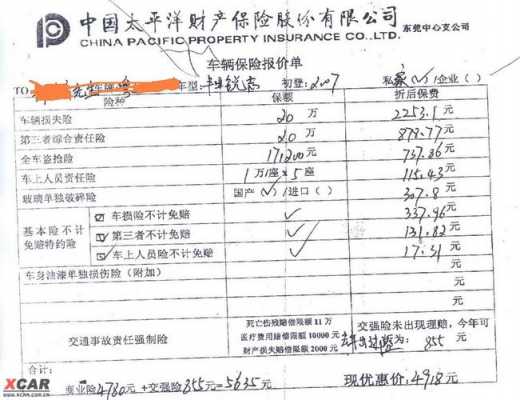 中国太平洋财产保险股份有限公司 东莞中心支公司
CHINA PACIFIC PROPERTY INSURANCE CO.LTD.
车辆保险报价单
TO 先生 车型: 锐志 初登: 2007 私家(✓)/企业( )
险种 保额 折后保费
车辆损失险 20 万 2253.1 元
第三者综合责任险 20 万 878.77 元
全车盗抢险 171200 元 737.86 元
车上人员责任险 1 万/座 × 5 座 115.43 元
玻璃单独破碎险 国产(✓)/进口( ) 307.8 元
基本险不计免赔特约险
☑ 车损险不计免赔 ✓ 337.96 元
☑ 第三者不计免赔 ✓ 131.82 元
☑ 车上人员险不计免赔 ✓ 17.31 元
车身油漆单独损伤险(附加) 元
元
元
交通事故责任强制险
死亡伤残赔偿限额 11 万
医疗费用赔偿限额 10000 元
财产损失赔偿限额 2000 元
交强险未出现理赔,今年可
为: 855 元
合计:
商业险 4780 元 +交强险 855 元= 5635 元 现优惠价: 4918 元
XCAR
www.xcar.com.cn